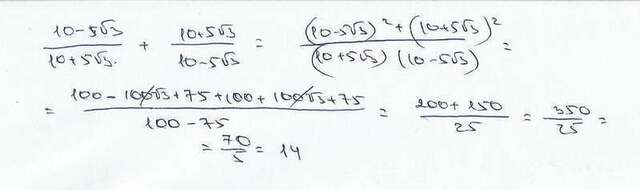 (10-5√3)/(10+5√3) + (10+5√3)/(10-5√3) = ((10-5√3)² + (10+5√3)²)/((10+5√3) (10-5√3)) =
= (100-100√3+75+100+100√3+75)/(100-75) = (200+150)/25 = 350/25 =
= 70/5 = 14